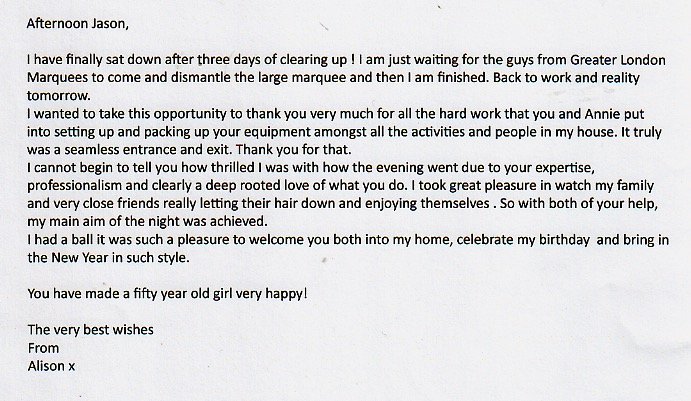 Afternoon Jason,
I have finally sat down after three days of clearing up ! I am just waiting for the guys from Greater London
Marquees to come and dismantle the large marquee and then I am finished. Back to work and reality
tomorrow.
I wanted to take this opportunity to thank you very much for all the hard work that you and Annie put
into setting up and packing up your equipment amongst all the activities and people in my house. It truly
was a seamless entrance and exit. Thank you for that.
I cannot begin to tell you how thrilled I was with how the evening went due to your expertise,
professionalism and clearly a deep rooted love of what you do. I took great pleasure in watch my family
and very close friends really letting their hair down and enjoying themselves . So with both of your help,
my main aim of the night was achieved.
I had a ball it was such a pleasure to welcome you both into my home, celebrate my birthday  and bring in
the New Year in such style.
You have made a fifty year old girl very happy!
The very best wishes
From
Alison x